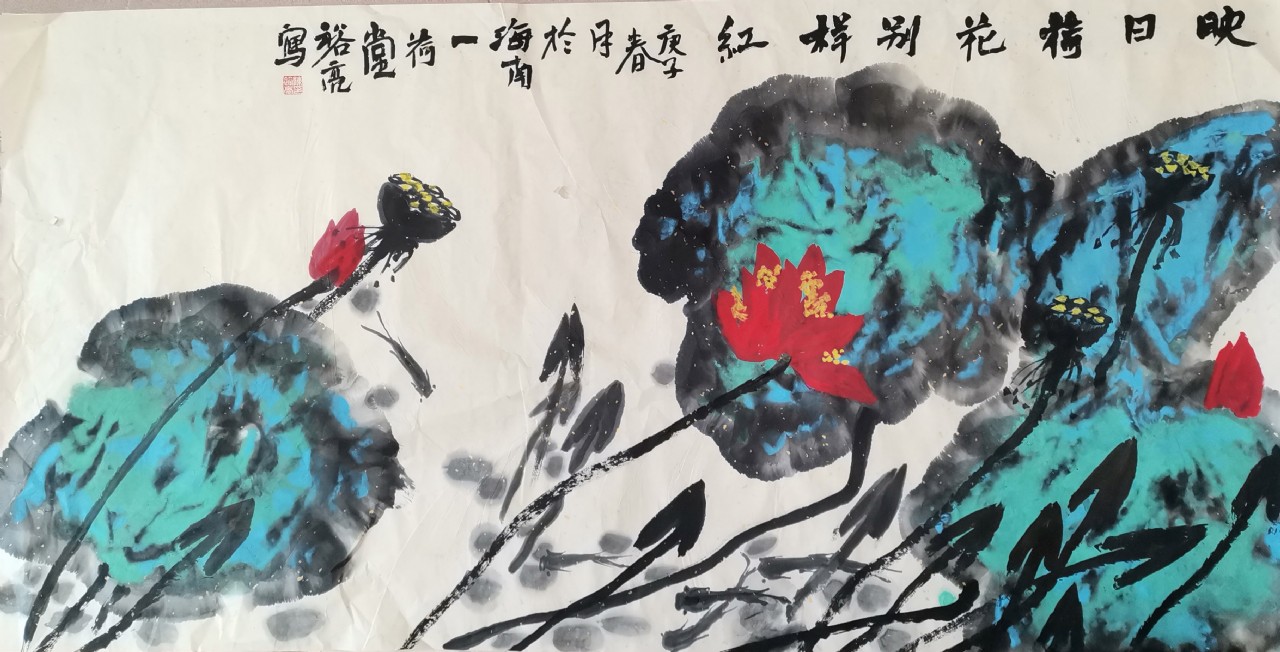 映日荷花别样红
庚子春月於海南一荷堂裕亮写